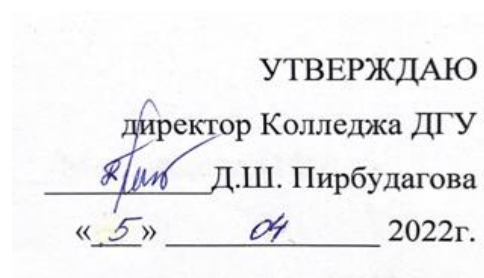 УТВЕРЖДАЮ
директор Колледжа ДГУ
____________Д.Ш. Пирбудагова
«_5_» _______04_______ 2022г.